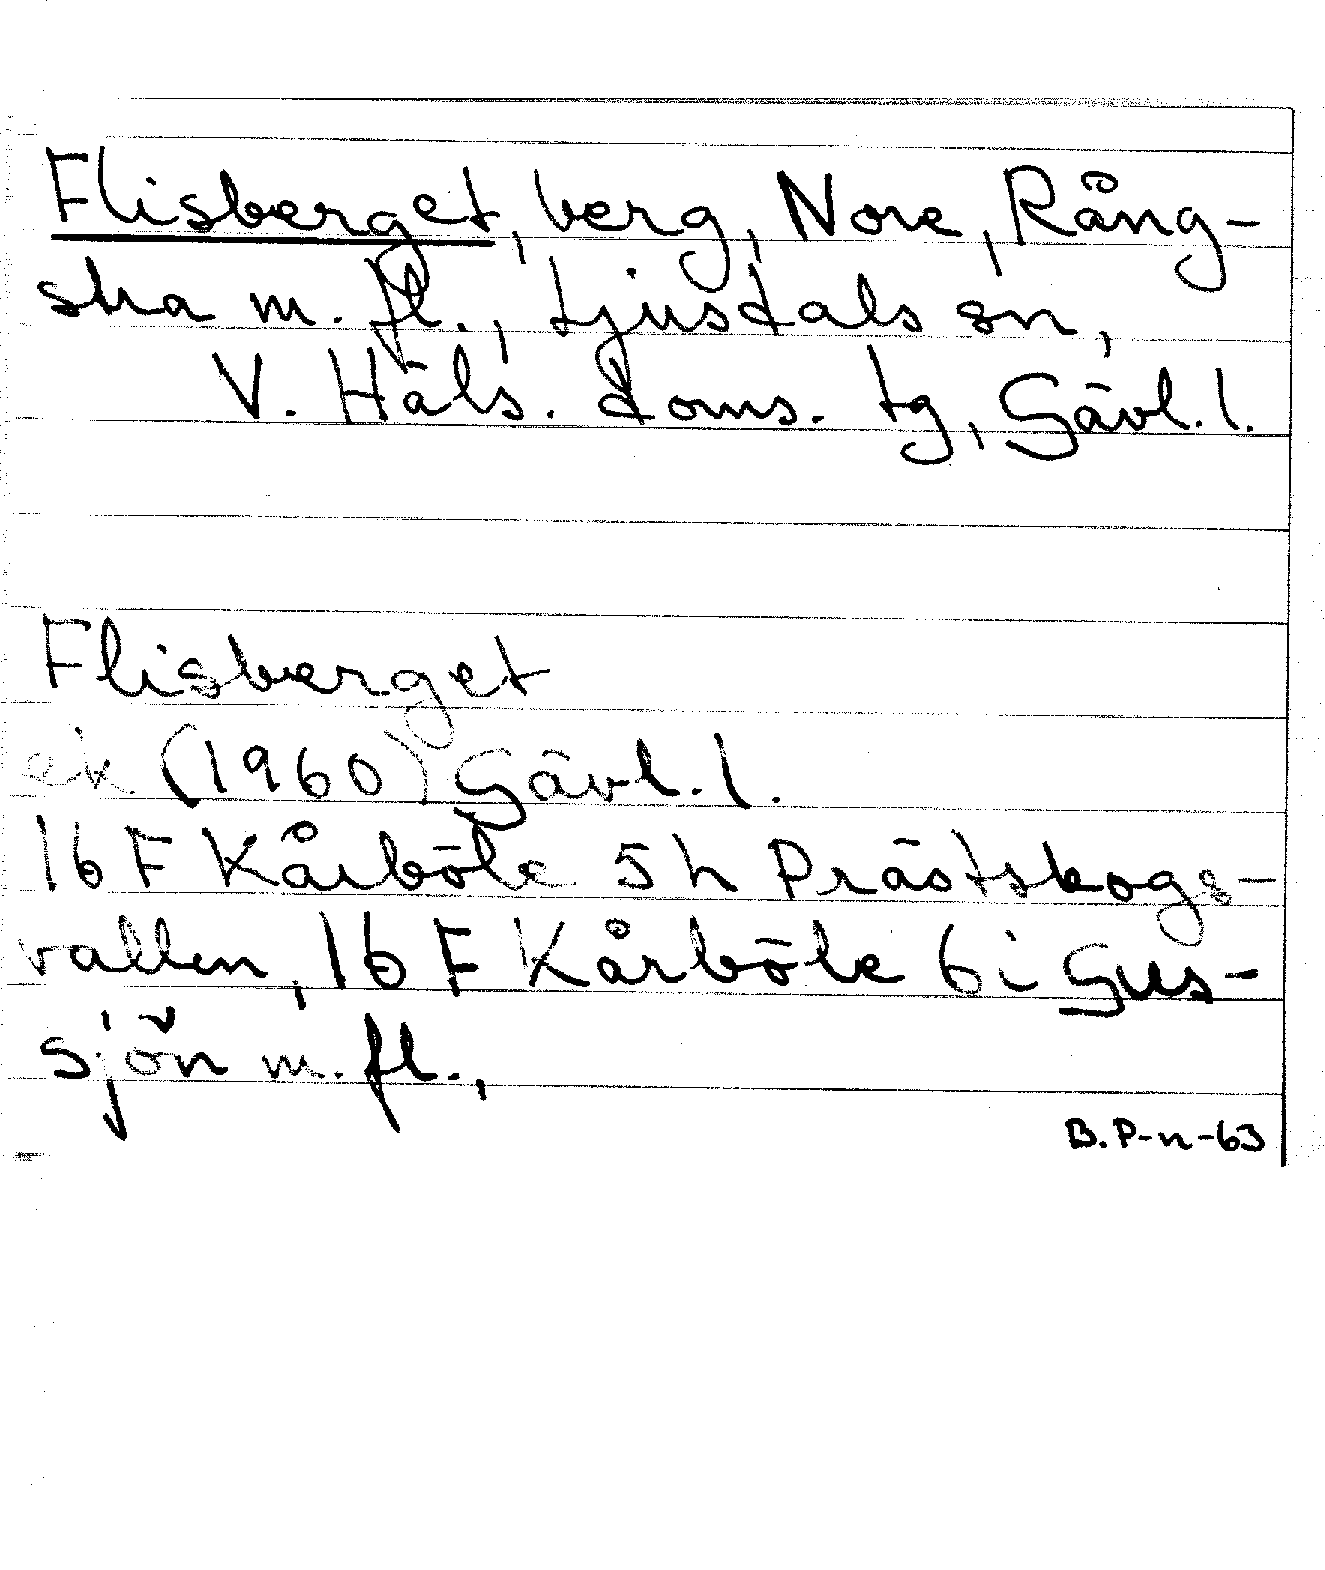 Flisberget, berg, Nore, Rång-
sta m. fl., Ljusdals sn,
V. Häls. doms. tg, Gävl. l.
Flisberget
ek (1960) Gävl. l.
16 F Kårböle 5 h Prästskogs-
vallen, 16 F Kårböle 6 i Gus-
sjön m. fl.,
B. P-n-63